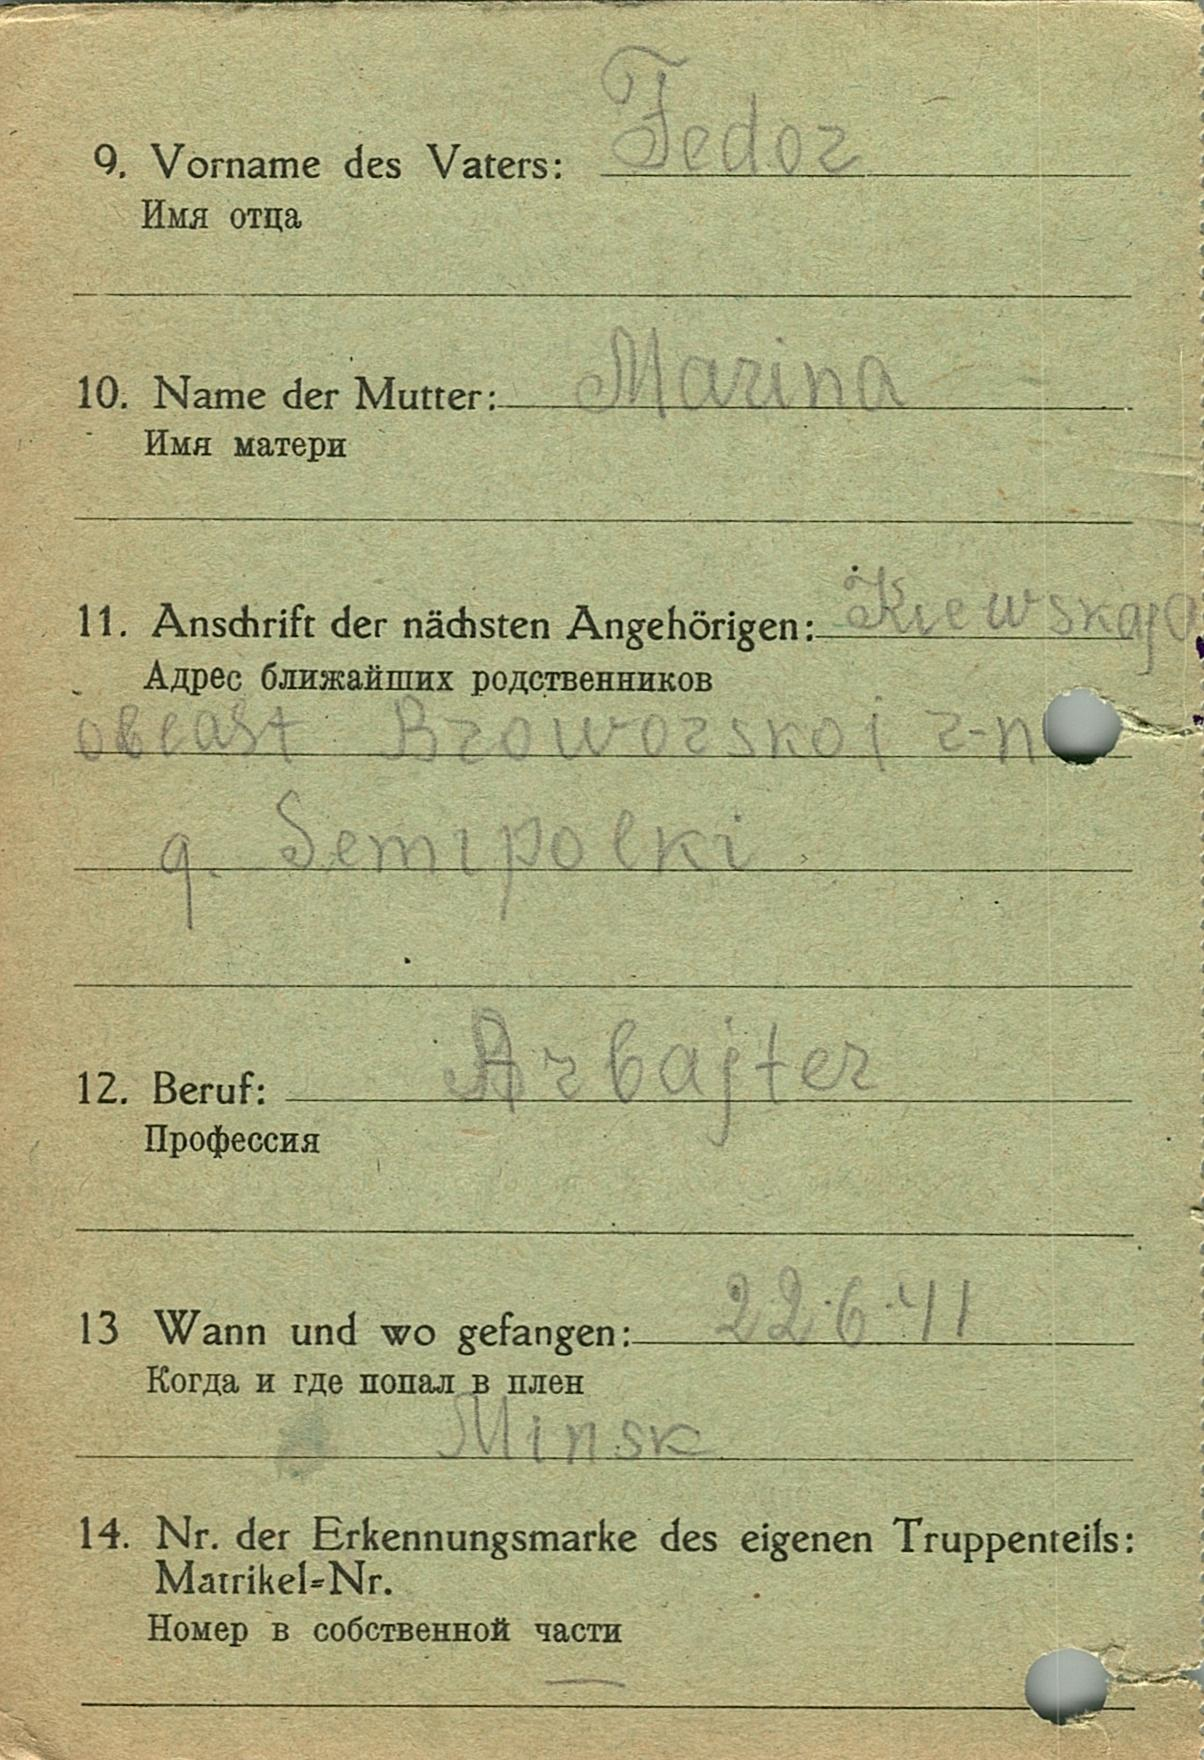 9. Vorname des Vaters: Fedor
Имя отца
10. Name der Mutter: Marina
Имя матери
11. Anschrift der nächsten Angehörigen: Kiewskaja
Адрес ближайших родственников
oblast Broworskoj r-n
q. Semipolki
12. Beruf: Arbajter
Профессия
13 Wann und wo gefangen: 22.6.41
Когда и где попал в плен
Minsk
14. Nr. der Erkennungsmarke des eigenen Truppenteils:
Matrikel-Nr.
Номер в собственной части
—